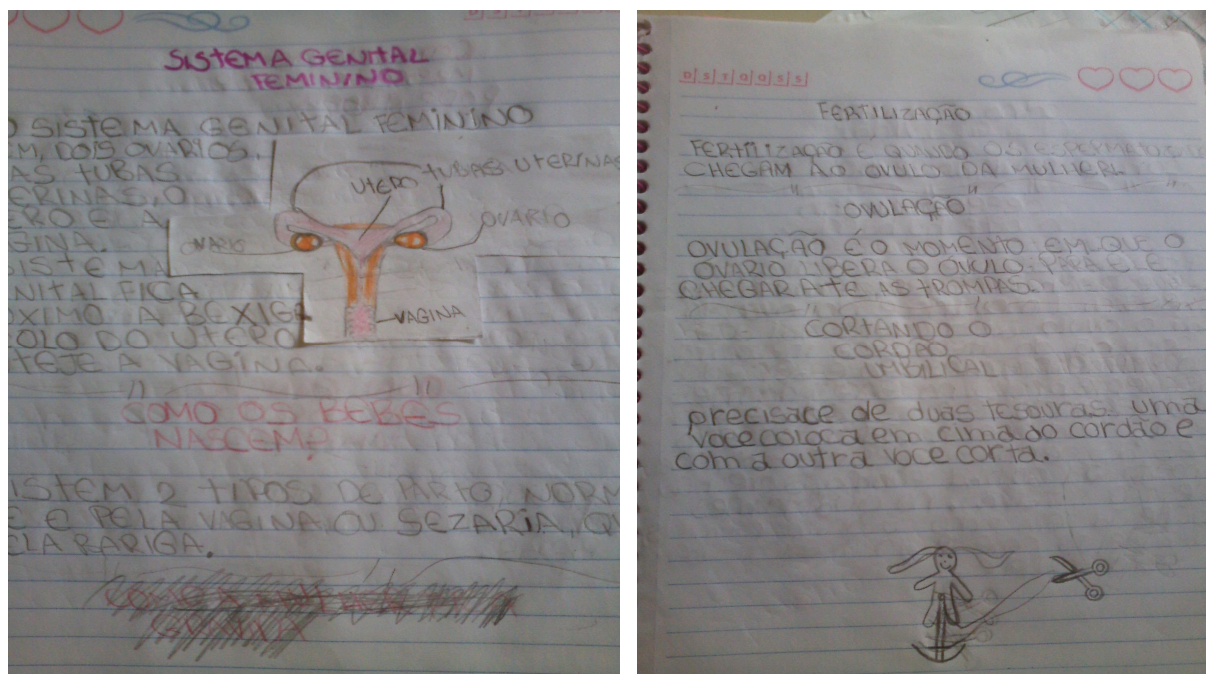 SISTEMA GENITAL
FEMININO
O SISTEMA GENITAL FEMININO
EM, DOIS OVARIOS,
AS TUBAS
ERINAS, O
ERO E A
GINA.
SISTEMA
NITAL FICA
OXIMO A BEXIGA
OLO DO UTERO
TEJE A VAGINA.
UTERO
TUBAS UTERINAS
OVARIO
OVARIO
VAGINA
COMO OS BEBÊS
NASCEM?
ISTEM 2 TIPOS DE PARTO, NORM
E E PELA VAGINA, OU SEZARIA, QU
ELA BARIGA.
D S T Q Q S S
FERTILIZAÇÃO
FERTILIZAÇÃO É QUANDO OS
CHEGAM AO OVULO DA MULHER.
OVULAÇÃO
OVULAÇÃO É O MOMENTO EM QUE O
OVARIO LIBERA O OVULO PARA ELE
CHEGAR ATE AS TROMPAS.
CORTANDO O
CORDÃO
UMBILICAL
precisace de duas tesouras. uma
voce coloca em cima do cordão e
com a outra voce corta.